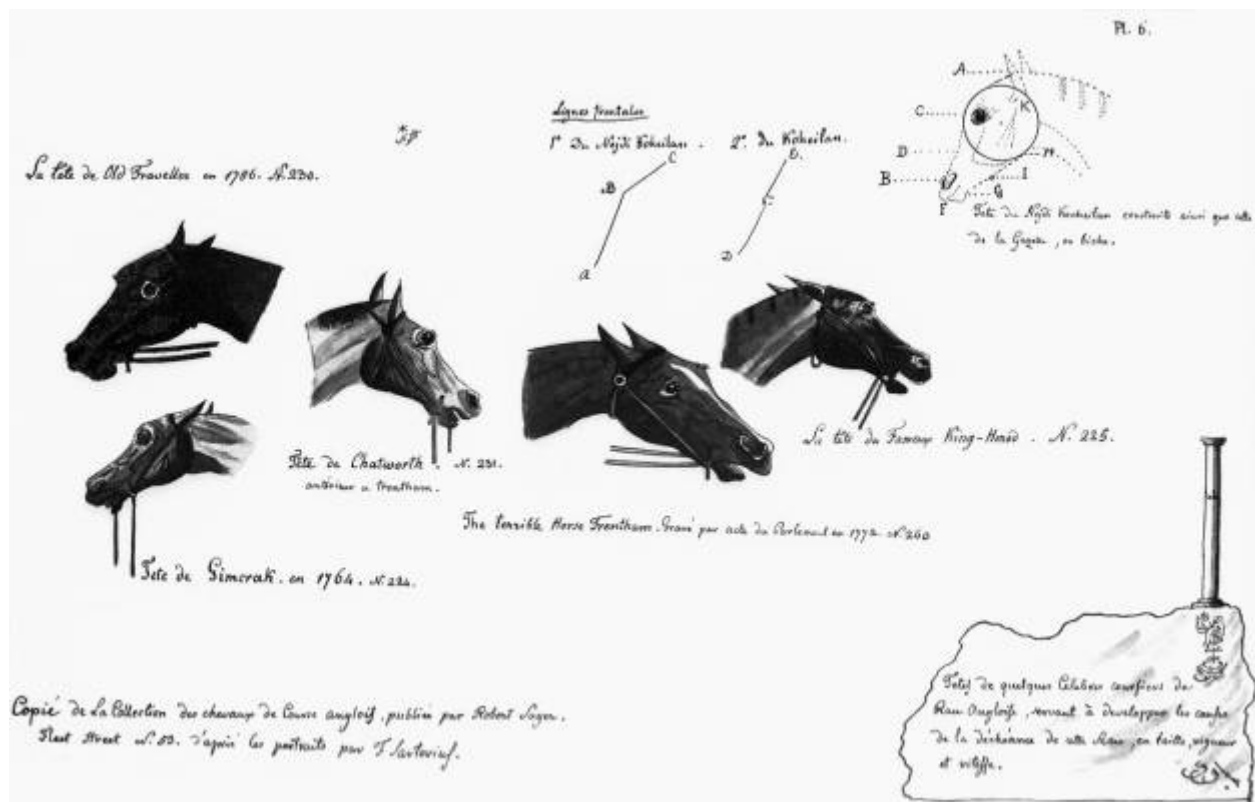 Pl. 6.
A
C
D
B
F
K
H
I
G
Tête du Nejdi Koheilan construite ainsi que celle
de la Gazelle, ou biche.
Lignes frontales
1° Du Nejdi Koheilan.
2° Du Koheilan.
C
B
A
E
C
D
La tête de Old Traveller en 1786. N. 230.
Tête de Chatworth. N. 231.
antérieur a Trentham.
La tête du Fameux King-Herod. N. 225.
The terrible Horse Trentham. Gravé par acte du Parlement en 1772. N. 260
Tete de Gimcrak. en 1764. N. 224.
Copié de La Collection des chevaux de Course angloif, publiée par Robert Sayer.
Fleet Street N. 53. d'après les portraits par F Sartorius.
Tetes de quelques Célebres coursiers de
Race Angloise, servant à developper les causes
de la déchéance de cette Race, en taille, vigueur
et vitesse.